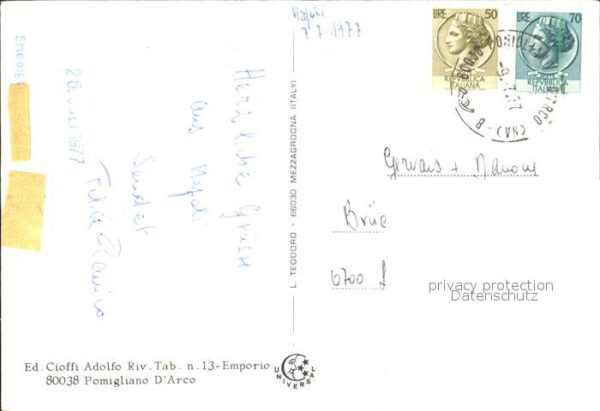 Napoli
7.7.1977
LIRE 50
REPUBBLICA
ITALIANA
LIRE 70
POSTE
REPUBBLICA
ITALIANA
80038 POMIGLIANO D'ARCO (NA)
Herzliche Grüsse
aus Napoli
sendet
1977
L. TEODORO - 66030 MEZZAGROGNA (ITALY)
Gervais +
6700
privacy protection
Datenschutz
Ed. Cioffi Adolfo Riv. Tab. n. 13-Emporio
80038 Pomigliano D'Arco
UNIVERSAL